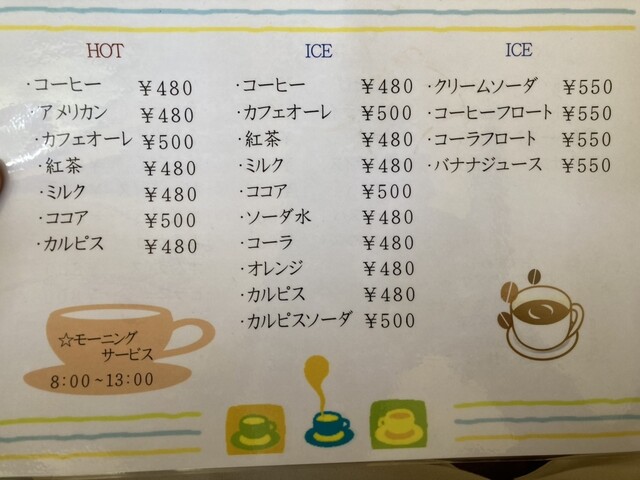 HOT
・コーヒー ￥480
・アメリカン ￥480
・カフェオーレ ￥500
・紅茶 ￥480
・ミルク ￥480
・ココア ￥500
・カルピス ￥480
☆モーニング
サービス
8:00~13:00
ICE
・コーヒー ￥480
・カフェオーレ ￥500
・紅茶 ￥480
・ミルク ￥480
・ココア ￥500
・ソーダ水 ￥480
・コーラ ￥480
・オレンジ ￥480
・カルピス ￥480
・カルピスソーダ ￥500
ICE
・クリームソーダ ￥550
・コーヒーフロート ￥550
・コーラフロート ￥550
・バナナジュース ￥550